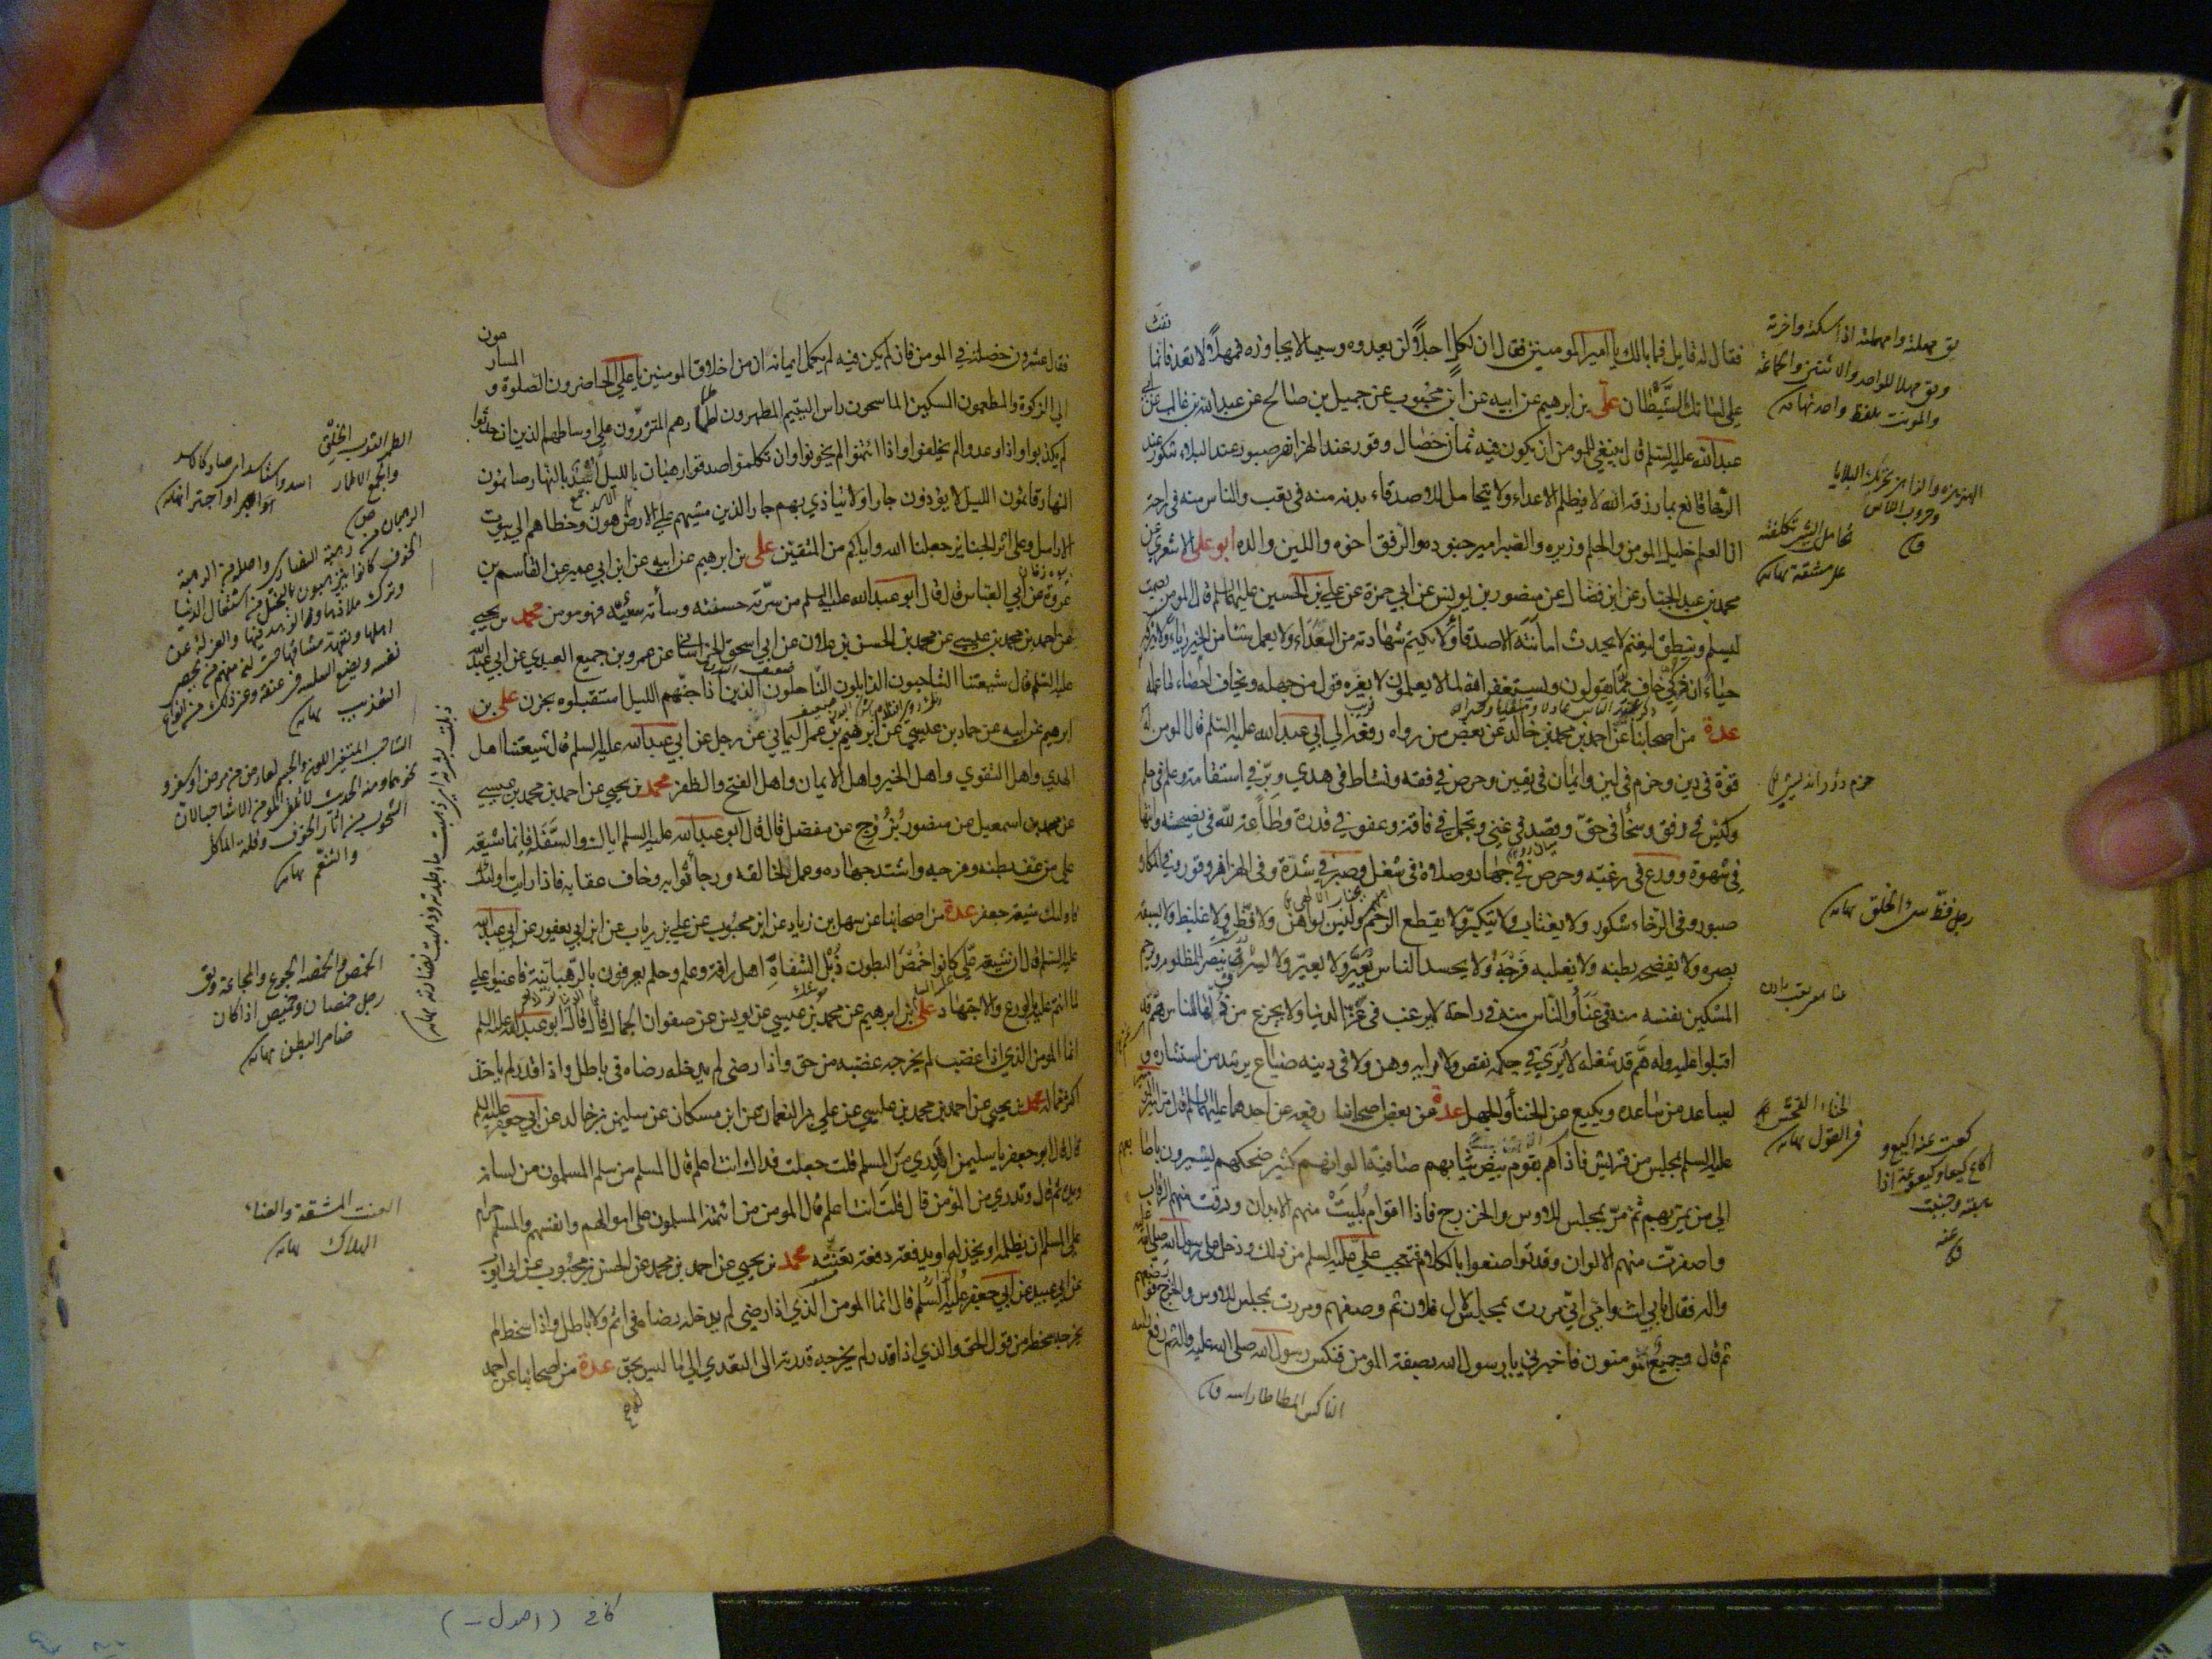 فقال له قايل فما بالك يا امير المومنين فقال ان لكل اجلا لن يعدوه وسببا لا يجاوزه فمهلا لا تعد فانما نفث
على لسانك الشيطان علي بن ابرهيم عن ابيه عن ابن محبوب عن جميل بن صالح عن عبد الله بن غالب عن ابي
عبد الله عليه السلم قال ينبغي للمومن ان يكون فيه ثمان خصال وقور عند الهزاهز صبور عند البلاء شكور عند
الرخا قانع بما رزقه الله لا يظلم الاعداء ولا يتحامل للاصدقاء بدنه منه في تعب والناس منه في راحة
ان العلم خليل المومن والحلم وزيره والصبر امير جنوده والرفق اخوه واللين والده ابو علي الاشعري عن
محمد بن عبد الجبار عن ابن فضال عن منصور بن يونس عن ابي حمزة عن علي بن الحسين عليهما السلم قال المومن يصمت
ليسلم وينطق ليغنم لا يحدث امانته الاصدقاء ولا يكتم شهادته من البعداء ولا يعمل شيئا من الخير رياء ولا يتركه
حياء ان زكي خاف مما يقولون ويستغفر الله لما لا يعلمون لا يغره قول من جهله ويخاف احصاء ما عمله
عدة من اصحابنا عن احمد بن محمد بن خالد عن بعض من رواه رفعه الى ابي عبد الله عليه السلم قال المومن له
قوة في دين وحزم في لين وايمان في يقين وحرص في فقه ونشاط في هدي وبر في استقامة وعلم في حلم
وكيس في رفق وسخا في حق وقصد في غنى وتجمل في فاقة وعفو في قدرة وطاعة لله في نصيحة وانتها
في شهوة وورع في رغبة وحرص في جهاد وصلاة في شغل وصبر في شدة وفي الهزاهز وقور وفي المكاره
صبور وفي الرخاء شكور ولا يغتاب ولا يتكبر ولا يقطع الرحم وليس بواهن ولا فظ ولا غليظ ولا يسبقه
بصره ولا يفضحه بطنه ولا يغلبه فرجه ولا يحسد الناس يعير ولا يعير ولا يسرف ينصر المظلوم ويرحم
المسكين نفسه منه في عناء والناس منه في راحة لا يرغب في عز الدنيا ولا يجزع من ذلها للناس هم قد
اقبلوا عليه وله هم قد شغله لا يرى في حكمه نقص ولا في رايه وهن ولا في دينه ضياع يرشد من استشاره و
يساعد من ساعده ويكيع عن الخنا والجهل عدة عن بعض اصحابنا رفعه عن احدهما عليهما السلم قال مر امير المومنين
عليه السلم بمجلس من قريش فاذا هم بقوم بيض ثيابهم صافية الوانهم كثير ضحكهم يشيرون باصابعهم
الى من يمر بهم ثم مر بمجلس للاوس والخزرج فاذا اقوام بليت منهم الابدان ودقت منهم الرقاب
واصفرت منهم الالوان وقد تواضعوا بالكلام فتعجب علي عليه السلم من ذلك ودخل على رسول الله صلى الله عليه
واله فقال بابي انت وامي اني مررت بمجلس لال فلان ثم وصفهم ومررت بمجلس للاوس والخزرج فوصفهم
ثم قال وجميع مومنون فاخبرني يا رسول الله بصفة المومن فنكس رسول الله صلى الله عليه واله ثم رفع راسه
الناكس المطاطا راسه
يق مهلته وامهلته اذا اسكنته واخرته
ويق مهلا للواحد والاثنين والجماعة
والمونث بلفظ واحد نهاية
الهزهزة والهزاهز تحريك البلايا
وحروب الناس
ق
تحامل الشي تكلفته
على مشقة نهاية
رجل فظ سيئ الخلق نهاية
الخنا الفحش
في القول نهاية
فقال عشرون خصلة في المومن فان لم يكن فيه لم يكمل ايمانه ان من اخلاق المومنين يا علي الحاضرون الصلوة و المسارعون
الى الزكوة والمطعمون المسكين الماسحون راس اليتيم المطهرون اطمارهم المتزرون على اوساطهم الذين ان حدثوا
لم يكذبوا واذا وعدوا لم يخلفوا واذا ائتمنوا لم يخونوا وان تكلموا صدقوا رهبان بالليل اسد بالنهار صائمون
النهار قائمون الليل لا يؤذون جارا ولا يتاذي بهم جار الذين مشيهم على الارض هون وخطاهم الى بيوت
الارامل وعلى اثر الجنايز جعلنا الله واياكم من المتقين علي بن ابرهيم عن ابيه عن ابن ابي عمير عن القاسم بن
عروة عن ابي العباس قال قال ابو عبد الله عليه السلم من سرته حسنته وسأته سيئته فهو مومن محمد بن يحيى
عن احمد بن محمد بن عيسى عن محمد بن الحسن بن علان عن ابي اسحق الخراساني عن عمرو بن جميع العبدي عن ابي عبد الله
عليه السلم قال شيعتنا الشاحبون الذابلون الناحلون الذين اذا جنهم الليل استقبلوه بحزن علي بن
ابرهيم عن ابيه عن حماد بن عيسى عن ابرهيم بن عمر اليماني عن رجل عن ابي عبد الله عليه السلم قال شيعتنا اهل
الهدي واهل التقوي واهل الخير واهل الايمان واهل الفتح والظفر محمد بن يحيى عن احمد بن محمد بن عيسى
عن محمد بن اسمعيل عن منصور بزرج عن مفضل قال قال ابو عبد الله عليه السلم اياك والسفلة فانما شيعة
علي من عف بطنه وفرجه واشتد جهاده وعمل لخالقه ورجا ثوابه وخاف عقابه فاذا رايت اولئك
فاولئك شيعة جعفر عدة من اصحابنا عن سهل بن زياد عن ابن محبوب عن علي بن رياب عن ابن ابي يعفور عن ابي عبد الله
عليه السلم قال ان شيعة علي كانوا خمص البطون ذبل الشفاه اهل رافة وعلم وحلم يعرفون بالرهبانية فاعينوا على
ما انتم عليه بالورع والاجتهاد علي بن ابرهيم عن محمد بن عيسى عن يونس عن صفوان الجمال قال قال ابو عبد الله عليه السلم
انما المومن الذي اذا غضب لم يخرجه غضبه من حق واذا رضي لم يدخله رضاه في باطل واذا قدر لم ياخذ
اكثر مما له محمد بن يحيى عن احمد بن محمد بن عيسى عن علي بن النعمان عن ابن مسكان عن سليمن بن خالد عن ابي جعفر عليه السلم
قال قال ابو جعفر يا سليمن اتدري من المسلم قلت جعلت فداك انت اعلم قال المسلم من سلم المسلمون من لسانه
ويده ثم قال وتدري من المومن قال قلت انت اعلم قال المومن من ائتمنه المسلمون على اموالهم وانفسهم والمسلم حرام
على المسلم ان يظلمه او يخذله او يدفعه دفعة تعنته محمد بن يحيى عن احمد بن محمد عن الحسن بن محبوب عن ابي ايوب
عن ابي عبيدة عن ابي جعفر عليه السلم قال انما المومن الذي اذا رضي لم يدخله رضاه في اثم ولا باطل واذا سخط لم
يخرجه سخطه من قول الحق والذي اذا قدر لم يخرجه قدرته الى التعدي الى ما ليس بحق عدة من اصحابنا عن احمد
الطمر الثوب الخلق
والجمع الاطمار
الخمص والخمصة الجوع والمجاعة ويق
رجل خمصان وخميص اذا كان
ضامر البطن نهاية
العنت المشقة والعناء
الهلاك نهاية
كافي (اصول -)